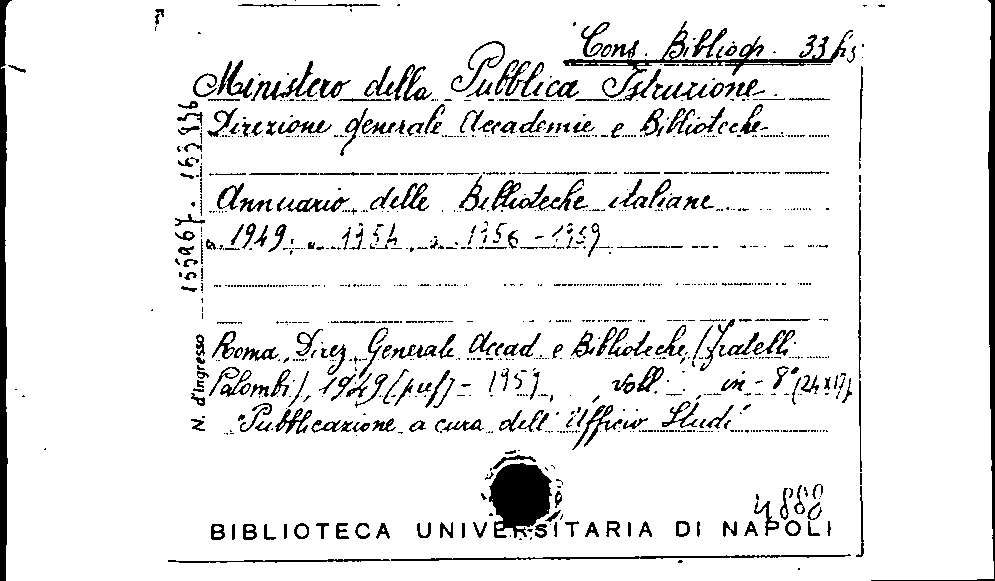 Cons. Bibliogr. 33
Ministero della Pubblica Istruzione.
Direzione generale Accademie e Biblioteche
Annuario delle Biblioteche italiane
a. 1949; a. 1954, a. 1956 - 1959
Roma, Direz. Generale Accad. e Biblioteche, (Fratelli
Palombi), 1949 [pref] - 1959, voll. in - 8° (24x17).
"Pubblicazione a cura dell' Ufficio Studi"
N. d'Ingresso 155967. 163836
4888
BIBLIOTECA UNIVERSITARIA DI NAPOLI